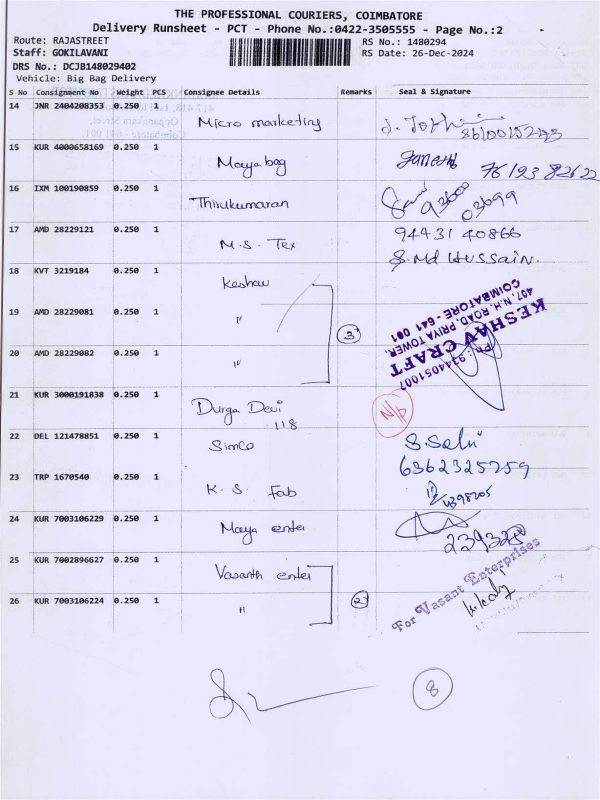 THE PROFESSIONAL COURIERS, COIMBATORE
Delivery Runsheet - PCT - Phone No.:0422-3505555 - Page No.:2
Route: RAJASTREET RS No.: 1480294
Staff: GOKILAVANI RS Date: 26-Dec-2024
DRS No.: DCJB148029402
Vehicle: Big Bag Delivery
S No Consignment No Weight PCS Consignee Details Remarks Seal & Signature
14 JNR 2404208353 0.250 1
Micro marketing
15 KUR 4000658169 0.250 1
Maya bag Ganesh 76193 82622
16 IXM 100190859 0.250 1
Thirukumaran 93600 03699
17 AMD 28229121 0.250 1 94431 40866
M.S. Tex S. Md Hussain.
18 KVT 3219184 0.250 1
Keshav
19 AMD 28229081 0.250 1
" 3
20 AMD 28229082 0.250 1
"
KESHAV CRAFT
407, N.H. ROAD, PRIYA TOWER,
COIMBATORE - 641 001
PH : 9344051007
21 KUR 3000191838 0.250 1
Durga Devi N/D
118
22 DEL 121478851 0.250 1
Simco 6362325259
23 TRP 1670540 0.250 1
K. S. Fab
24 KUR 7003106229 0.250 1
Maya enter
25 KUR 7002896627 0.250 1
Vasanth enter
26 KUR 7003106224 0.250 1
" 2
For Vasant Enterprises
8